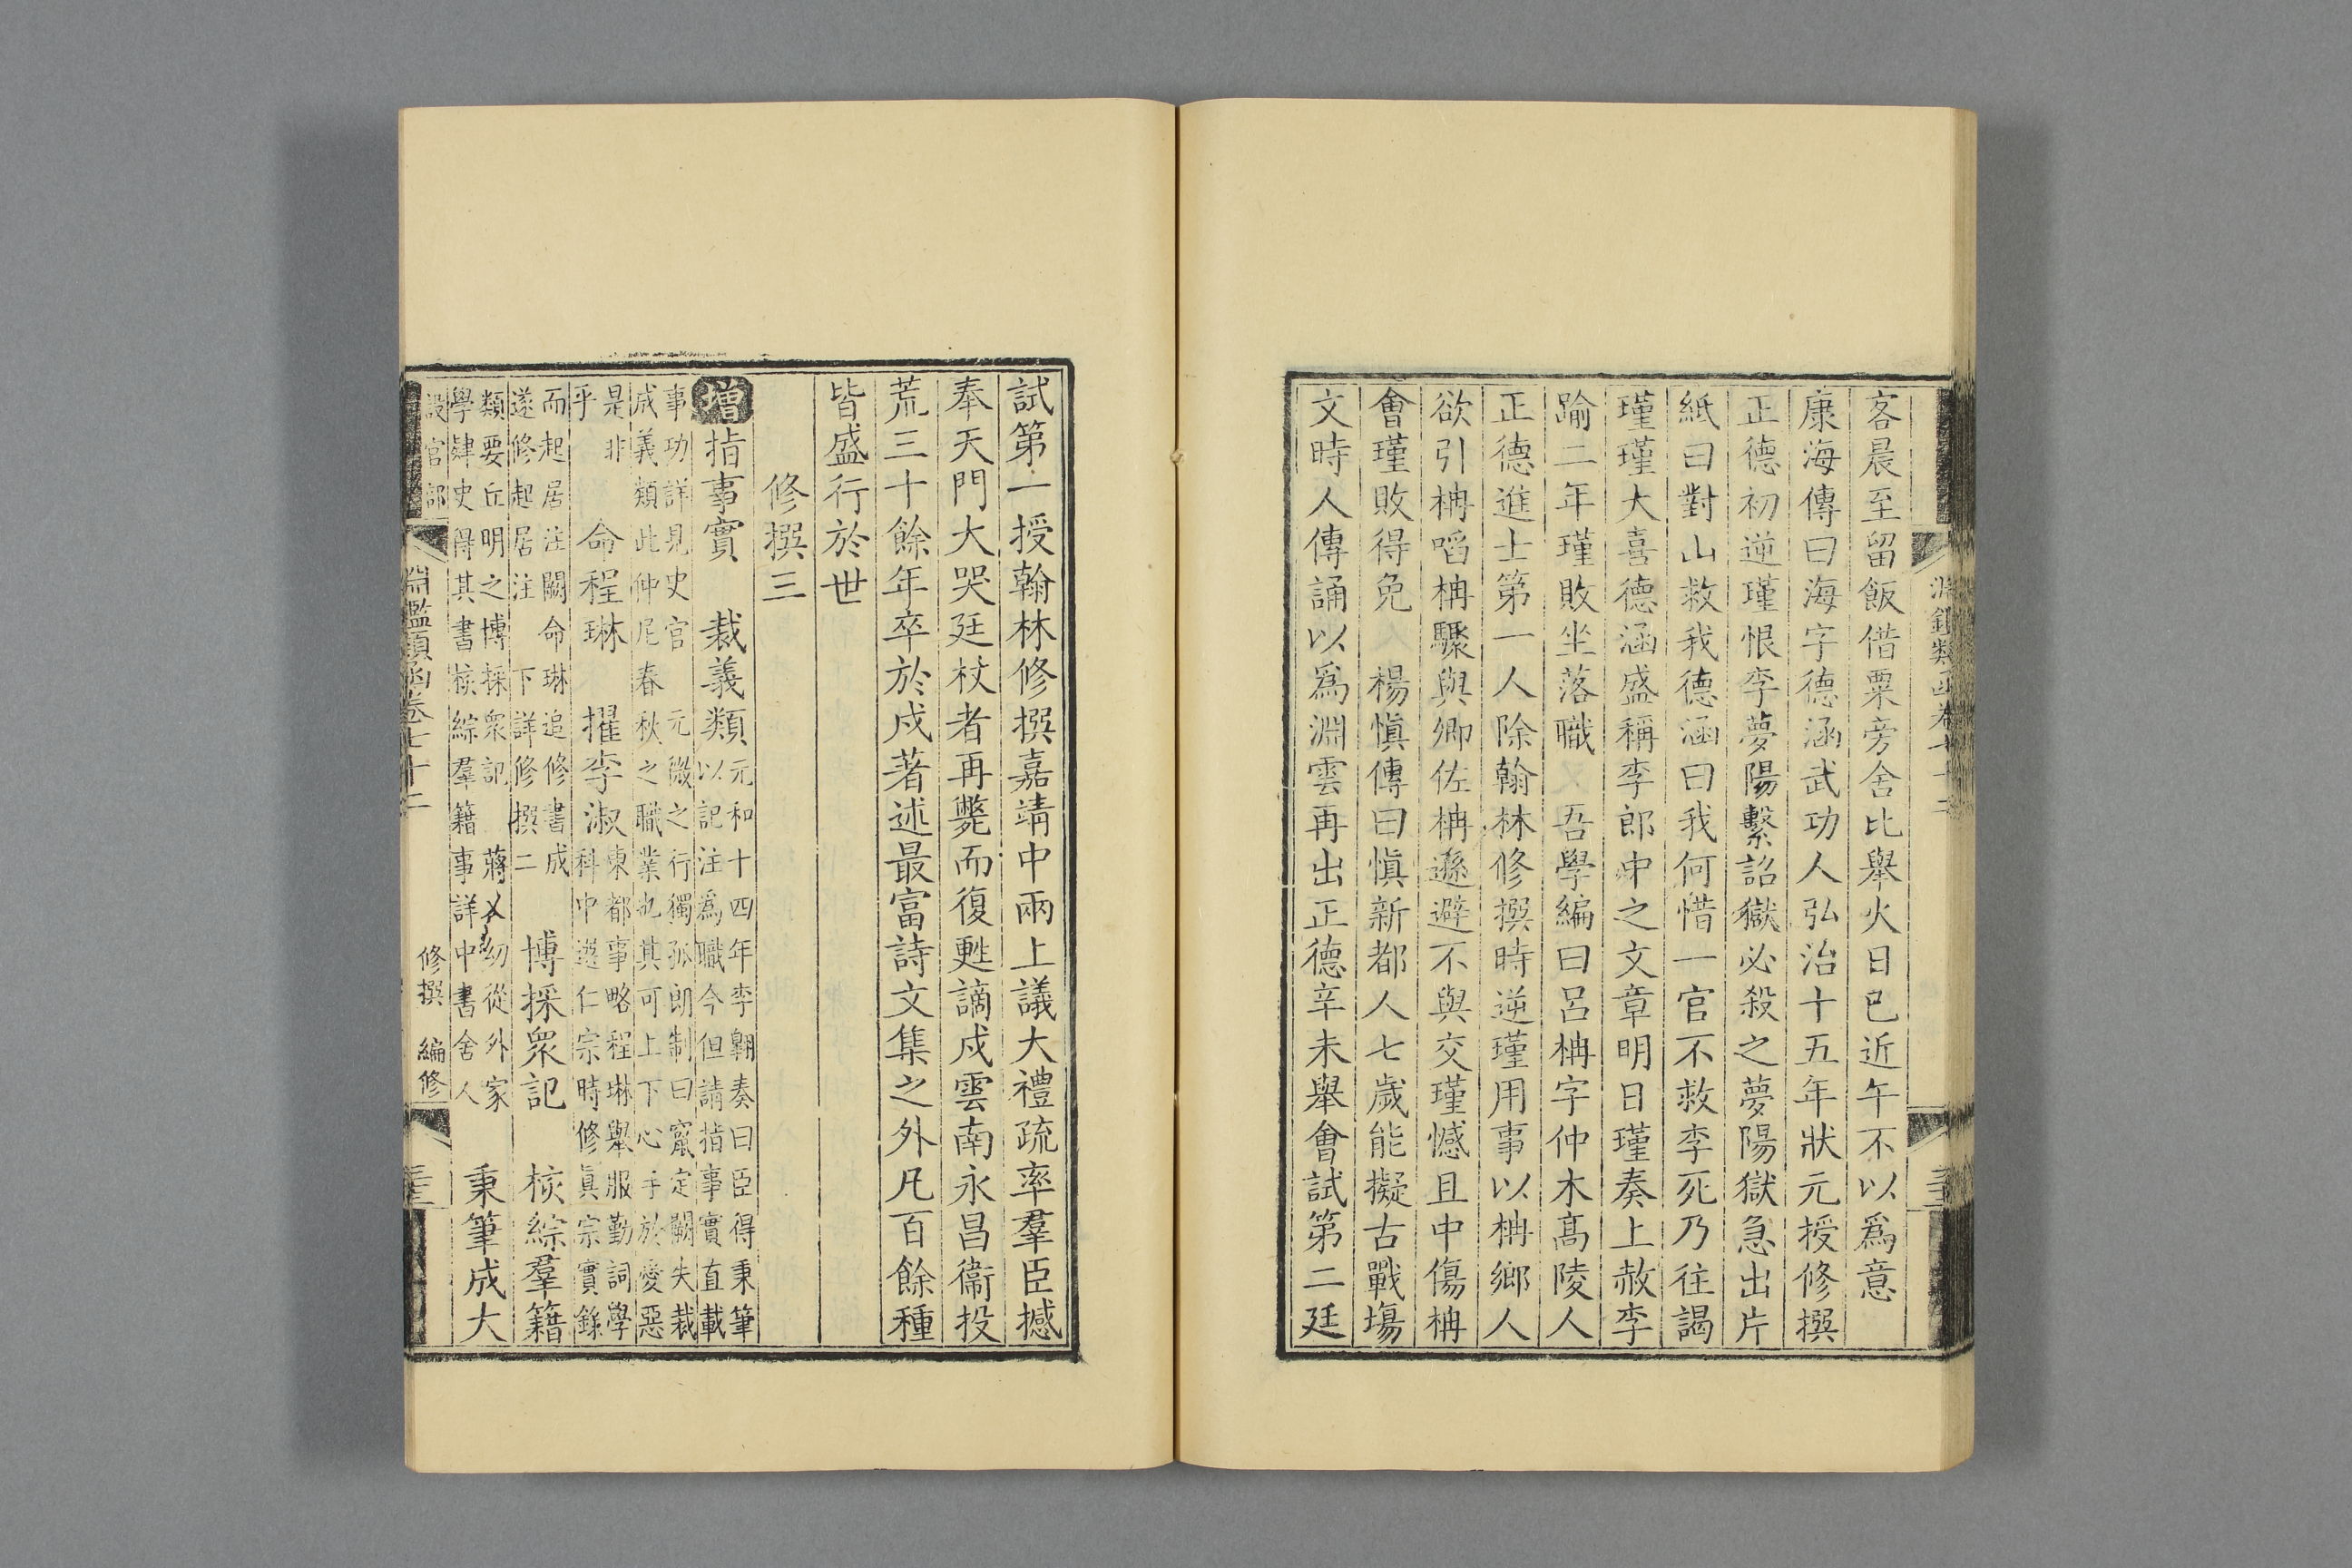 客晨至留飯借粟旁舍比舉火日已近午不以爲意
康海傳曰海字德涵武功人弘治十五年狀元授修撰
正德初逆瑾恨李夢陽繫詔獄必殺之夢陽獄急出片
紙曰對山救我德涵曰我何惜一官不救李死乃往謁
瑾瑾大喜德涵盛稱李郎中之文章明日瑾奏上赦李
踰二年瑾敗坐落職 吾學編曰呂柟字仲木高陵人
正德進士第一人除翰林修撰時逆瑾用事以柟鄉人
欲引柟啗柟驟與卿佐柟遜避不與交瑾憾且中傷柟
會瑾敗得免 楊愼傳曰愼新都人七歲能擬古戰塲
文時人傳誦以爲淵雲再出正德辛未舉會試第二廷
試第一授翰林修撰嘉靖中兩上議大禮疏率羣臣撼
奉天門大哭廷杖者再斃而復甦謫戍雲南永昌衞投
荒三十餘年卒於戍著述最富詩文集之外凡百餘種
皆盛行於世
修撰三
增指事實 裁義類元和十四年李翺奏曰臣得秉筆
以記注爲職今但請指事實直載
事功詳見史官 元微之行獨孤朗制曰竄定闕失裁
成義類此仲尼春秋之職業也其可上下心手於愛惡
是非
乎 命程琳 擢李淑東都事略程琳舉服勤詞學
科中選仁宗時修眞宗實錄
而起居注闕命琳追修書成
遂修起居注 下詳修撰二 博採衆記 核綜羣籍
類要丘明之博採衆記 蔣乂幼從外家
學肄史得其書核綜羣籍事詳中書舍人 秉筆成大
設官部 淵鑑類函卷七十二 修撰 編修